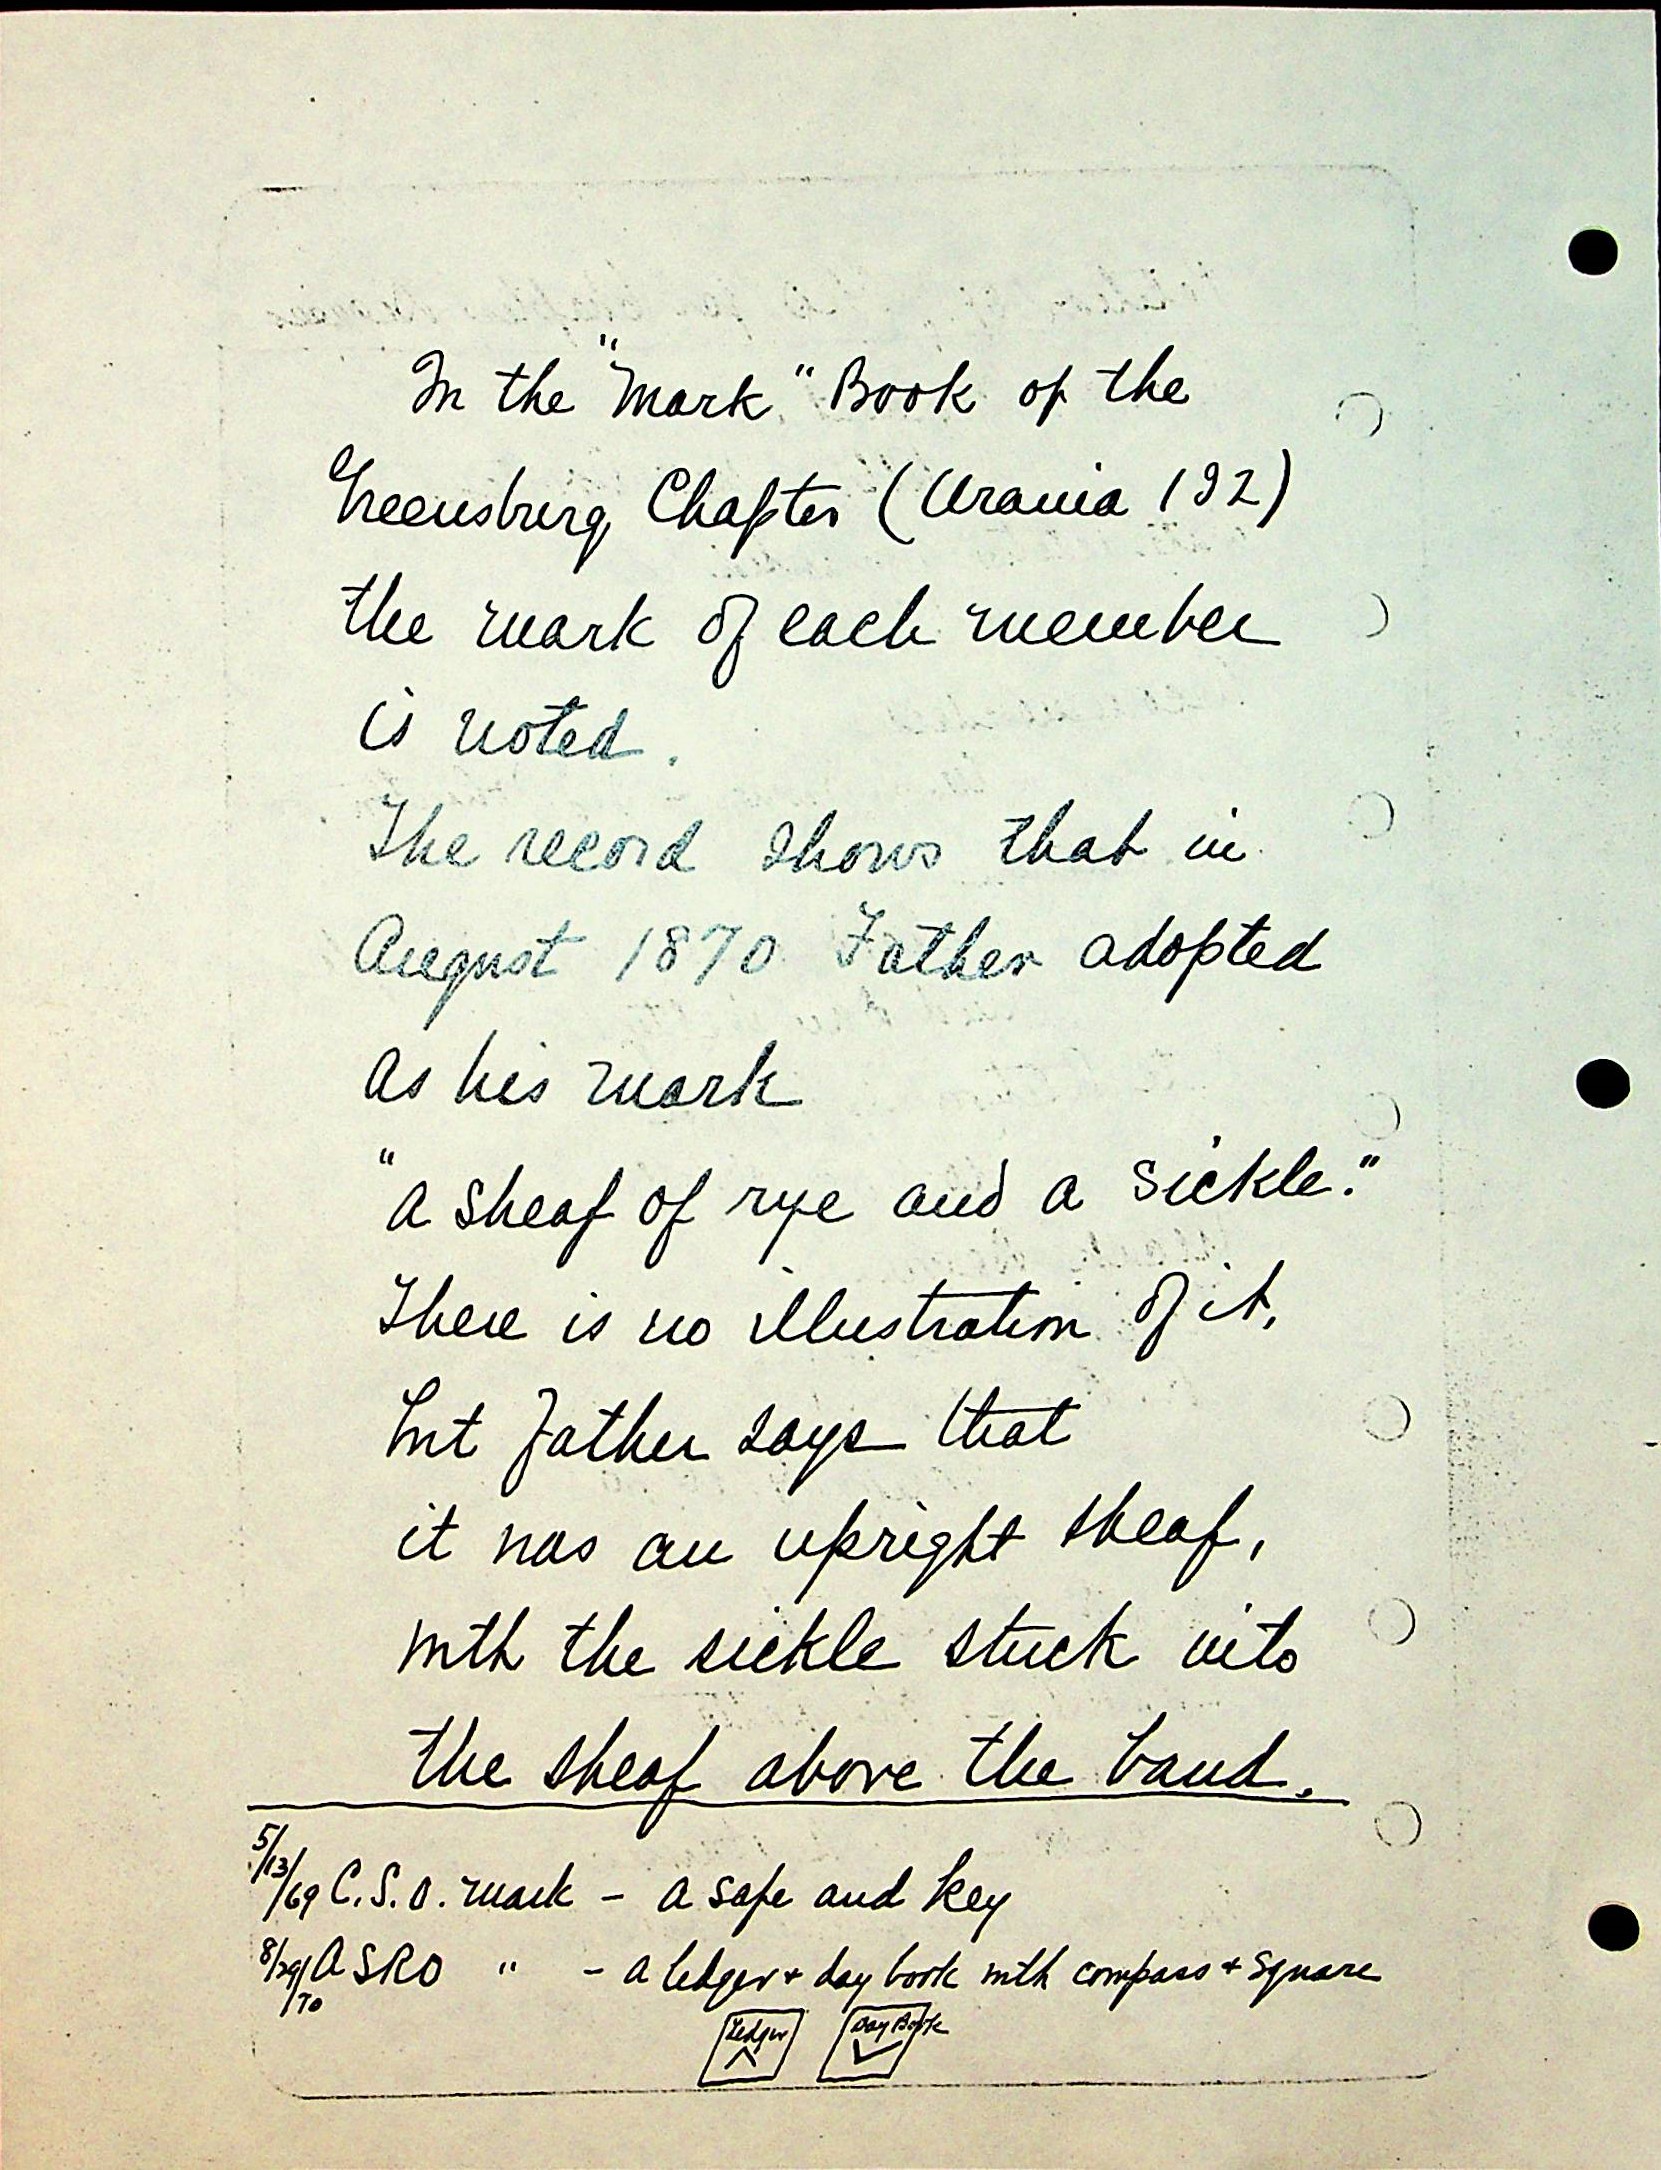 In the "Mark" Book of the
Greensburg Chapter (Urania 192)
the mark of each member
is noted.
The record shows that in
August 1870 Father adopted
as his mark
"a sheaf of rye and a sickle."
There is no illustration of it,
but Father says that
it was an upright sheaf,
with the sickle stuck into
the sheaf above the band.
5/13/69 C.S.O. mark - a safe and key
8/29/70 A SRO " - a ledger + day book with compass + square
Ledger Day Book